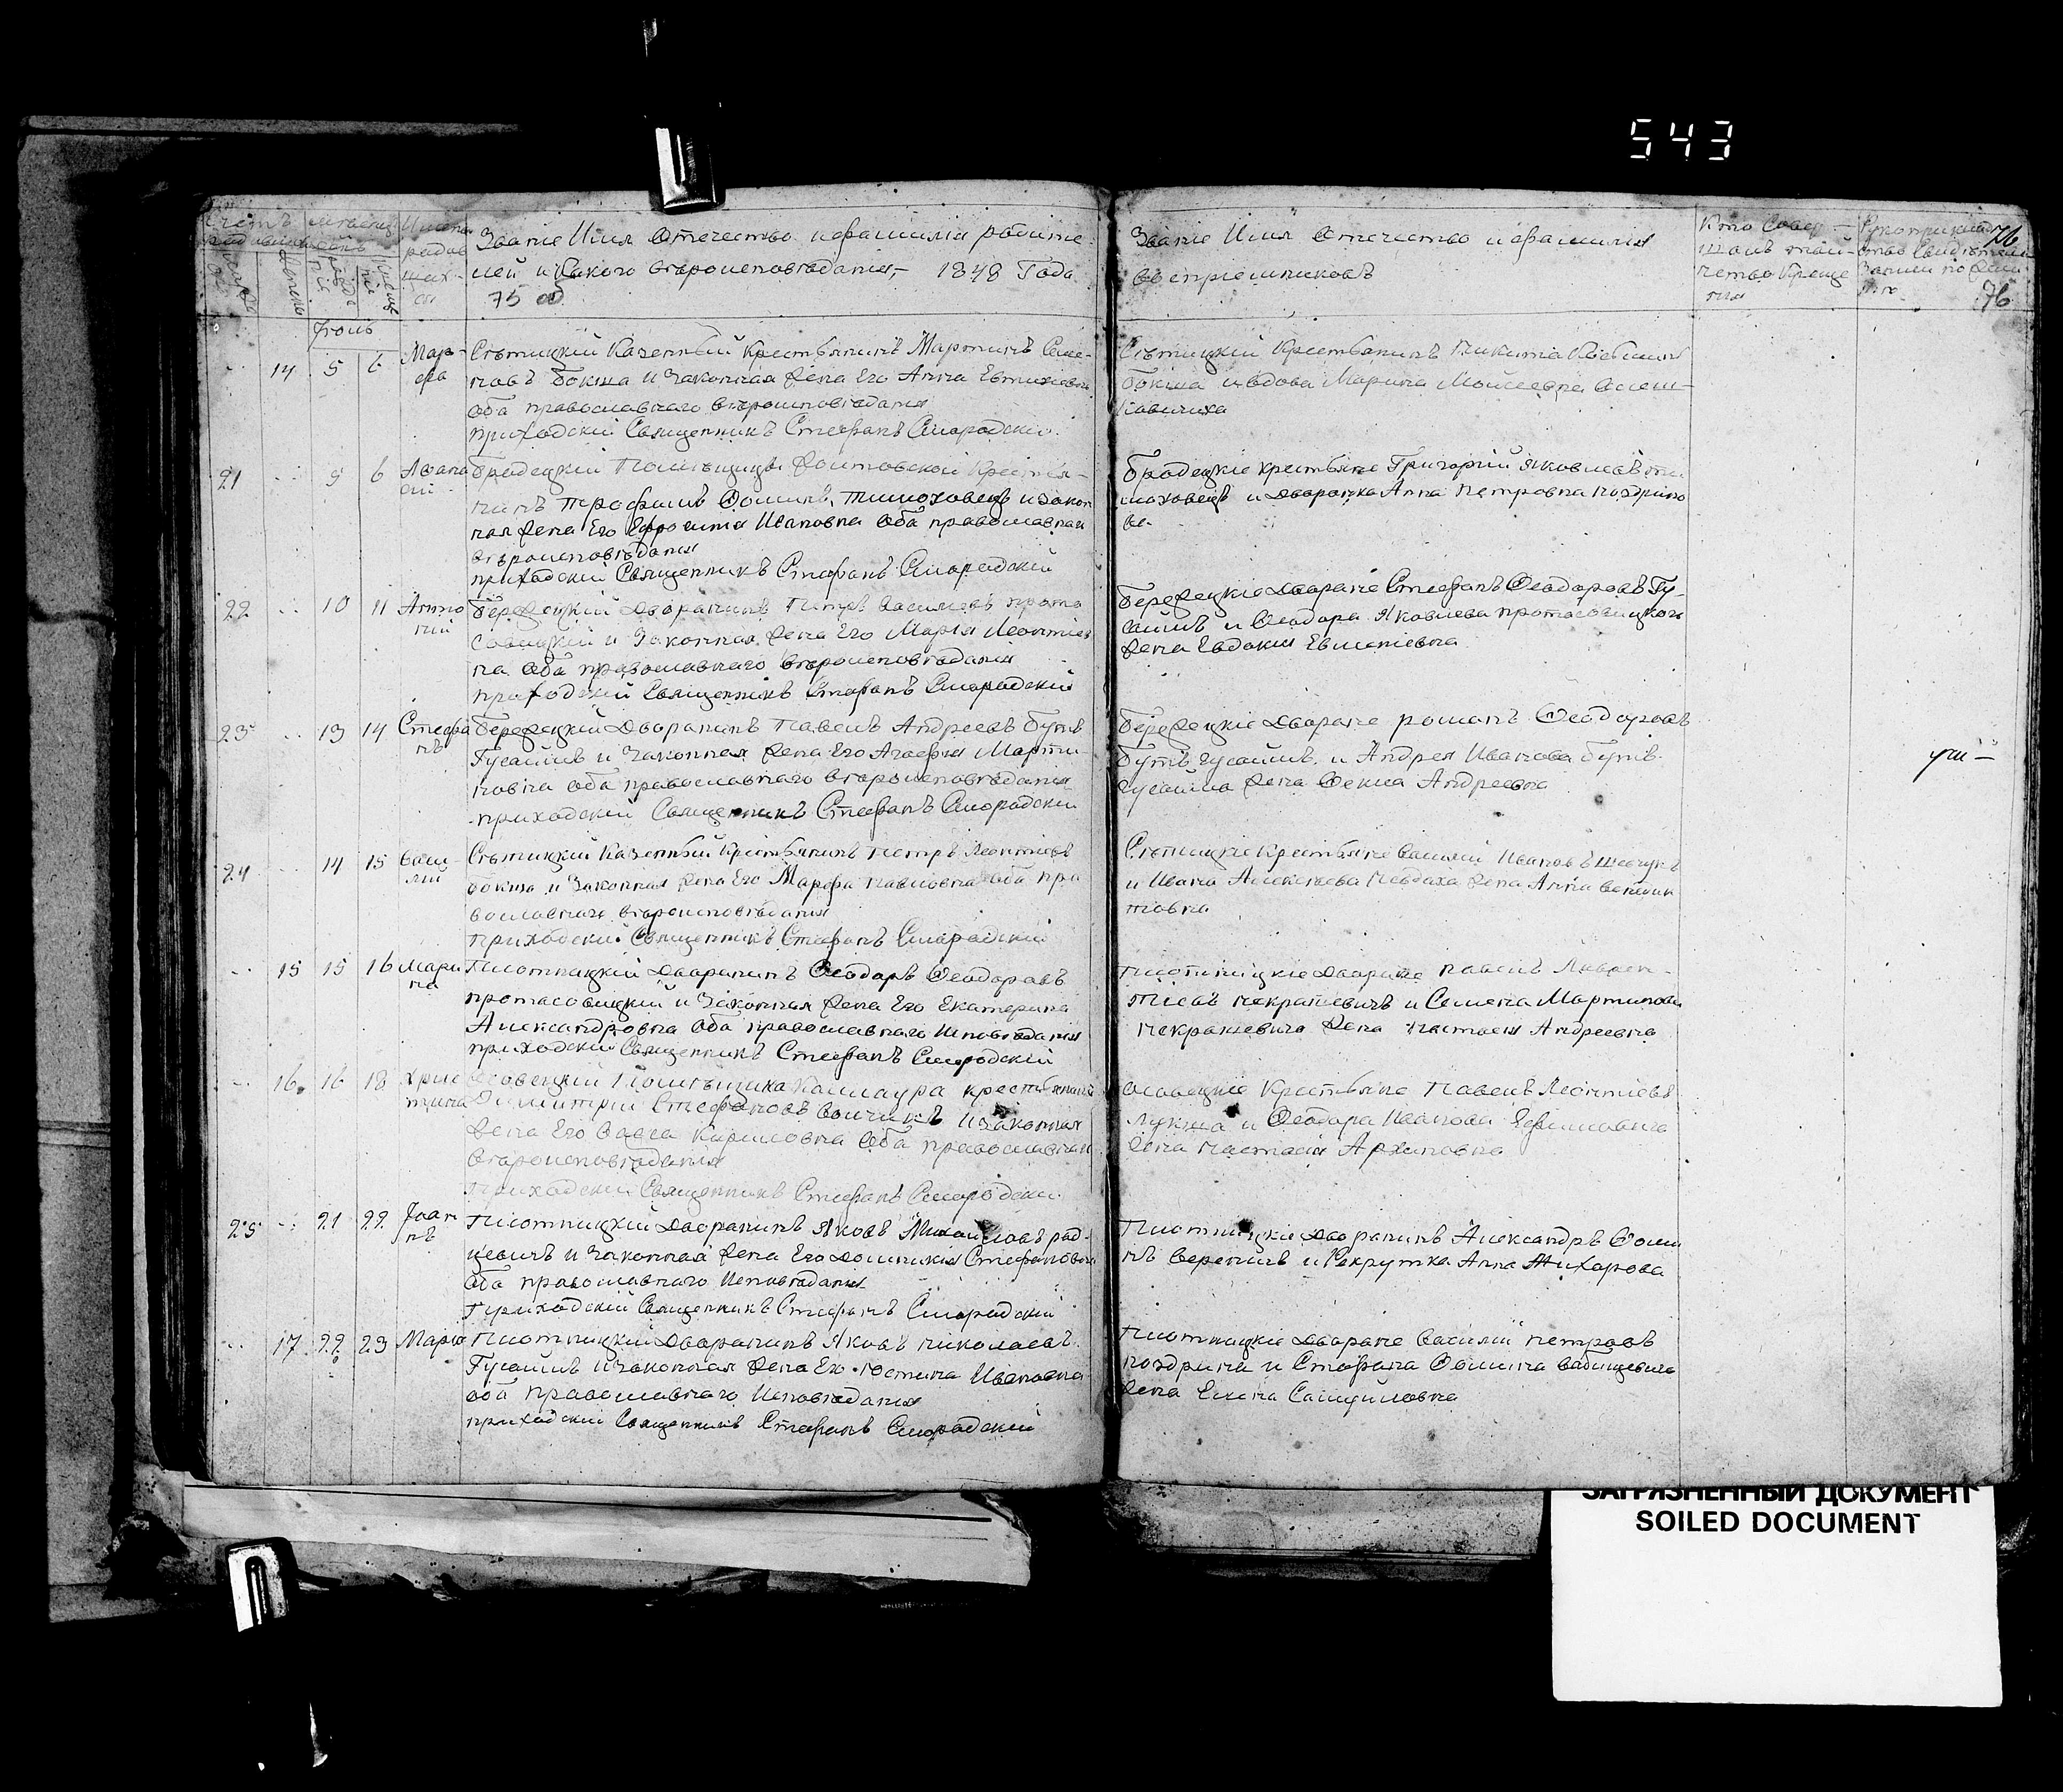 543
Счетъ
родившихся
Мѣсяцъ
день
Имена
родив
шихся
Званіе Имя Отечество и фамилія родите-
лей и Какого вѣроисповѣданія,- 1848 Года
75 об
Званіе Имя Отечество и фамилія
воспріемниковъ
Кто Совер-
шалъ таин-
ство Креще
нія
76
76
Іюнь
14 5 6 Мар-
ѳа
Сѣтицкій Казенный Крестьянинъ Мартинъ Семе-
новъ Бокша и Законная жена Его Анна Евтихіевна
оба православнаго вѣроисповѣданія
приходскій Священникъ Стефанъ Смородскій.
Сѣтицкій Крестьянинъ Никита
бокша и вдова Марина Моисеевна
21 9 6 Аѳана
сій
бродецкій Помѣщицы Крестья-
нинъ Трофимъ Ѳоминъ Тимоховецъ и закон
ная жена Его Ефросинія Ивановна оба православнаго
вѣроисповѣданія
приходскій Священникъ Стефанъ Смородскій
бродецкіе крестьяне Григорій Яковлевъ ти
моховецъ и дворянка Анна Петровна
22 10 11 Анто
ній
бережецкій дворянинъ Петръ Василіевъ прота
совицкій и Законная жена Его Марія Леонтіев
на оба православнаго вѣроисповѣданія
приходскій Священникъ Стефанъ Смородскій
бережецкіе дворяне Стефанъ Ѳеодоровъ Гу-
саимъ и Ѳеодора Яковлева протасовицкого
жена Евдокія
23 13 14 Стефа
нъ
бережецкій дворянинъ Павелъ Андреевъ бутъ
Гусаимъ и Законная жена Его Агафія Марти-
новна оба православнаго вѣроисповѣданія
приходскій Священникъ Стефанъ Смородскій
бережецкіе дворяне романъ Ѳеодоровъ
бутъ гусаимъ, и Андрея Иванова бутъ-
гусаима жена Ѳекла Андреевна
ум-
24 14 15 Васи-
лій
Сѣтицкій Казенный Крестьянинъ Петръ Леонтіевъ
бокша и Законная жена Его Марѳа Павловна оба пра
вославнаго вѣроисповѣданія
приходскій Священникъ Стефанъ Смородскій
Сѣтицкіе Крестьяне Василій Ивановъ Шевчукъ
и Ивана Алексѣева жена Анна
15 15 16 Мари
на
Плотницкій дворянинъ Ѳеодоръ Ѳеодоровъ
протасовицкій и Законная жена Его Екатерина
Александровна оба православнаго Исповѣданія
приходскій Священникъ Стефанъ Смородскій
Плотницкіе дворяне Павелъ Лаврен-
тіевъ некрашевичъ и Семена Мартинова
некрашевича жена Настасія Андреевна
16 16 18 Хрис
тина
Помѣщика крестьянинъ
Димитрій Стефановъ и законная
жена Его Кириловна оба православнаго
вѣроисповѣданія
приходскій Священникъ Стефанъ Смородскій.
Крестьяне Павелъ Леонтіевъ
лукша и Ѳеодора Иванова
жена Настасія Архиповна
25 21 22 Іоан
нъ
Плотницкій дворянинъ Яковъ Михайловъ рад-
цевичъ и Законная жена Его Домникія Стефановна
оба православнаго Исповѣданія
Приходскій Священникъ Стефанъ Смородскій
Плотницкіе дворянинъ Александръ Ѳоми
нъ Вереничъ и Рекрутка Анна Жихарова
17 22 23 Марія
Плотницкій дворянинъ Яковъ Николаевъ
Гусаимъ и законная жена Его Юстина Ивановна
оба православнаго Исповѣданія
приходскій Священникъ Стефанъ Смородскій
Плотницкіе дворяне Василій Петровъ
и Стефана Ѳомина
жена Елена Самуиловна
ЗАГРЯЗНЕННЫЙ ДОКУМЕНТ
SOILED DOCUMENT